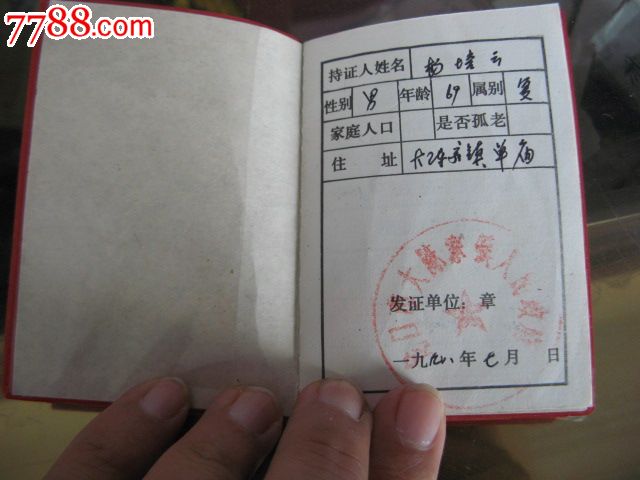 7788.com
持证人姓名 杨培云
性别 男 年龄 69 属别 复
家庭人口 是否孤老
住 址 大陈家镇单庙
大陈家镇人民政府
发证单位：章
一九八 年 七 月 日